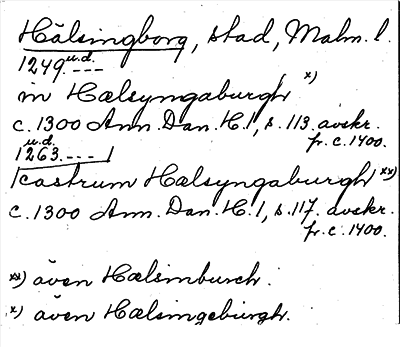 Hälsingborg, stad, Malm. l.
1249. u.d. ---
in Hælsyngaburgh x)
c. 1300 Ann. Dan. H. 1, s. 113. avskr.
fr. c. 1400.
1263. u.d. ---
castrum Hælsyngaburgh xx)
c. 1300 Ann. Dan. H. 1, s. 117. avskr.
fr. c. 1400.
xx) även Hælsinburch.
x) även Hælsingeburgh.